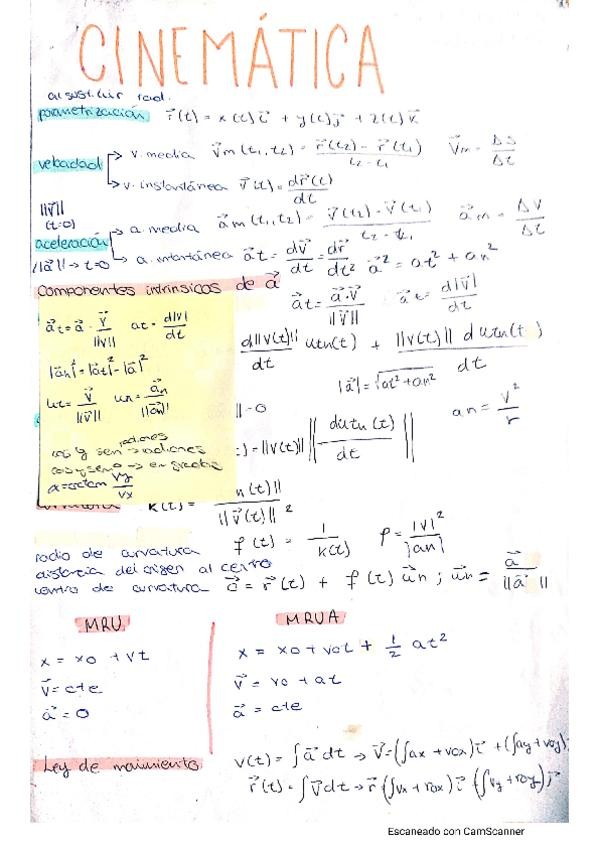 CINEMÁTICA
al sustituir rad.
parametrización r⃗(t) = x(t)i⃗ + y(t)j⃗ + z(t)k⃗
velocidad → v. media v⃗m(t1,t2) = (r⃗(t2) - r⃗(t1)) / (t2-t1) v⃗m = Δs/Δt
→ v. instantánea v⃗(t) = dr⃗(t)/dt
||v⃗||
(t=0)
aceleración → a. media a⃗m(t1,t2) = (v⃗(t2) - v⃗(t1)) / (t2-t1) a⃗m = Δv/Δt
||a⃗|| → t=0 → a. instantánea a⃗t = dv⃗/dt = dr⃗/dt² a⃗² = at² + an²
Componentes intrínsicos de a⃗
a⃗t = a⃗·v⃗/||v⃗|| a⃗t = d|v⃗|/dt
a⃗t = a⃗ · v⃗/||v⃗|| at = d|v|/dt
|a⃗n|² = |a⃗t|² - |a⃗|²
ut = v⃗/||v⃗|| un = a⃗n/|a⃗n|
radianes
cos y sen → radianes
cos y seno → en grados
α = arctan vy/vx
d||v(t)||/dt utn(t) + ||v(t)|| dutn(t)/dt
|a⃗| = √(at² + an²)
|| = 0 an = v²/r
t) = ||v(t)|| || dutn(t)/dt ||
k(t) = n(t)|| / ||v⃗(t)||²
radio de curvatura ρ(t) = 1/k(t) ρ = |v|²/|an|
distancia del origen al centro
centro de curvatura c⃗ = r⃗(t) + ρ(t) u⃗n ; u⃗n = a⃗/||a⃗||
MRU
x = x0 + vt
v⃗ = cte
a⃗ = 0
MRUA
x = x0 + v0t + 1/2 at²
v⃗ = v0 + at
a⃗ = cte
Ley de movimiento v(t) = ∫a⃗ dt → v⃗ = (∫ax + v0x)i⃗ + (∫ay + v0y)j
r⃗(t) = ∫v⃗ dt → r⃗ (∫vx + r0x)i⃗ (∫vy + r0y)j⃗
Escaneado con CamScanner